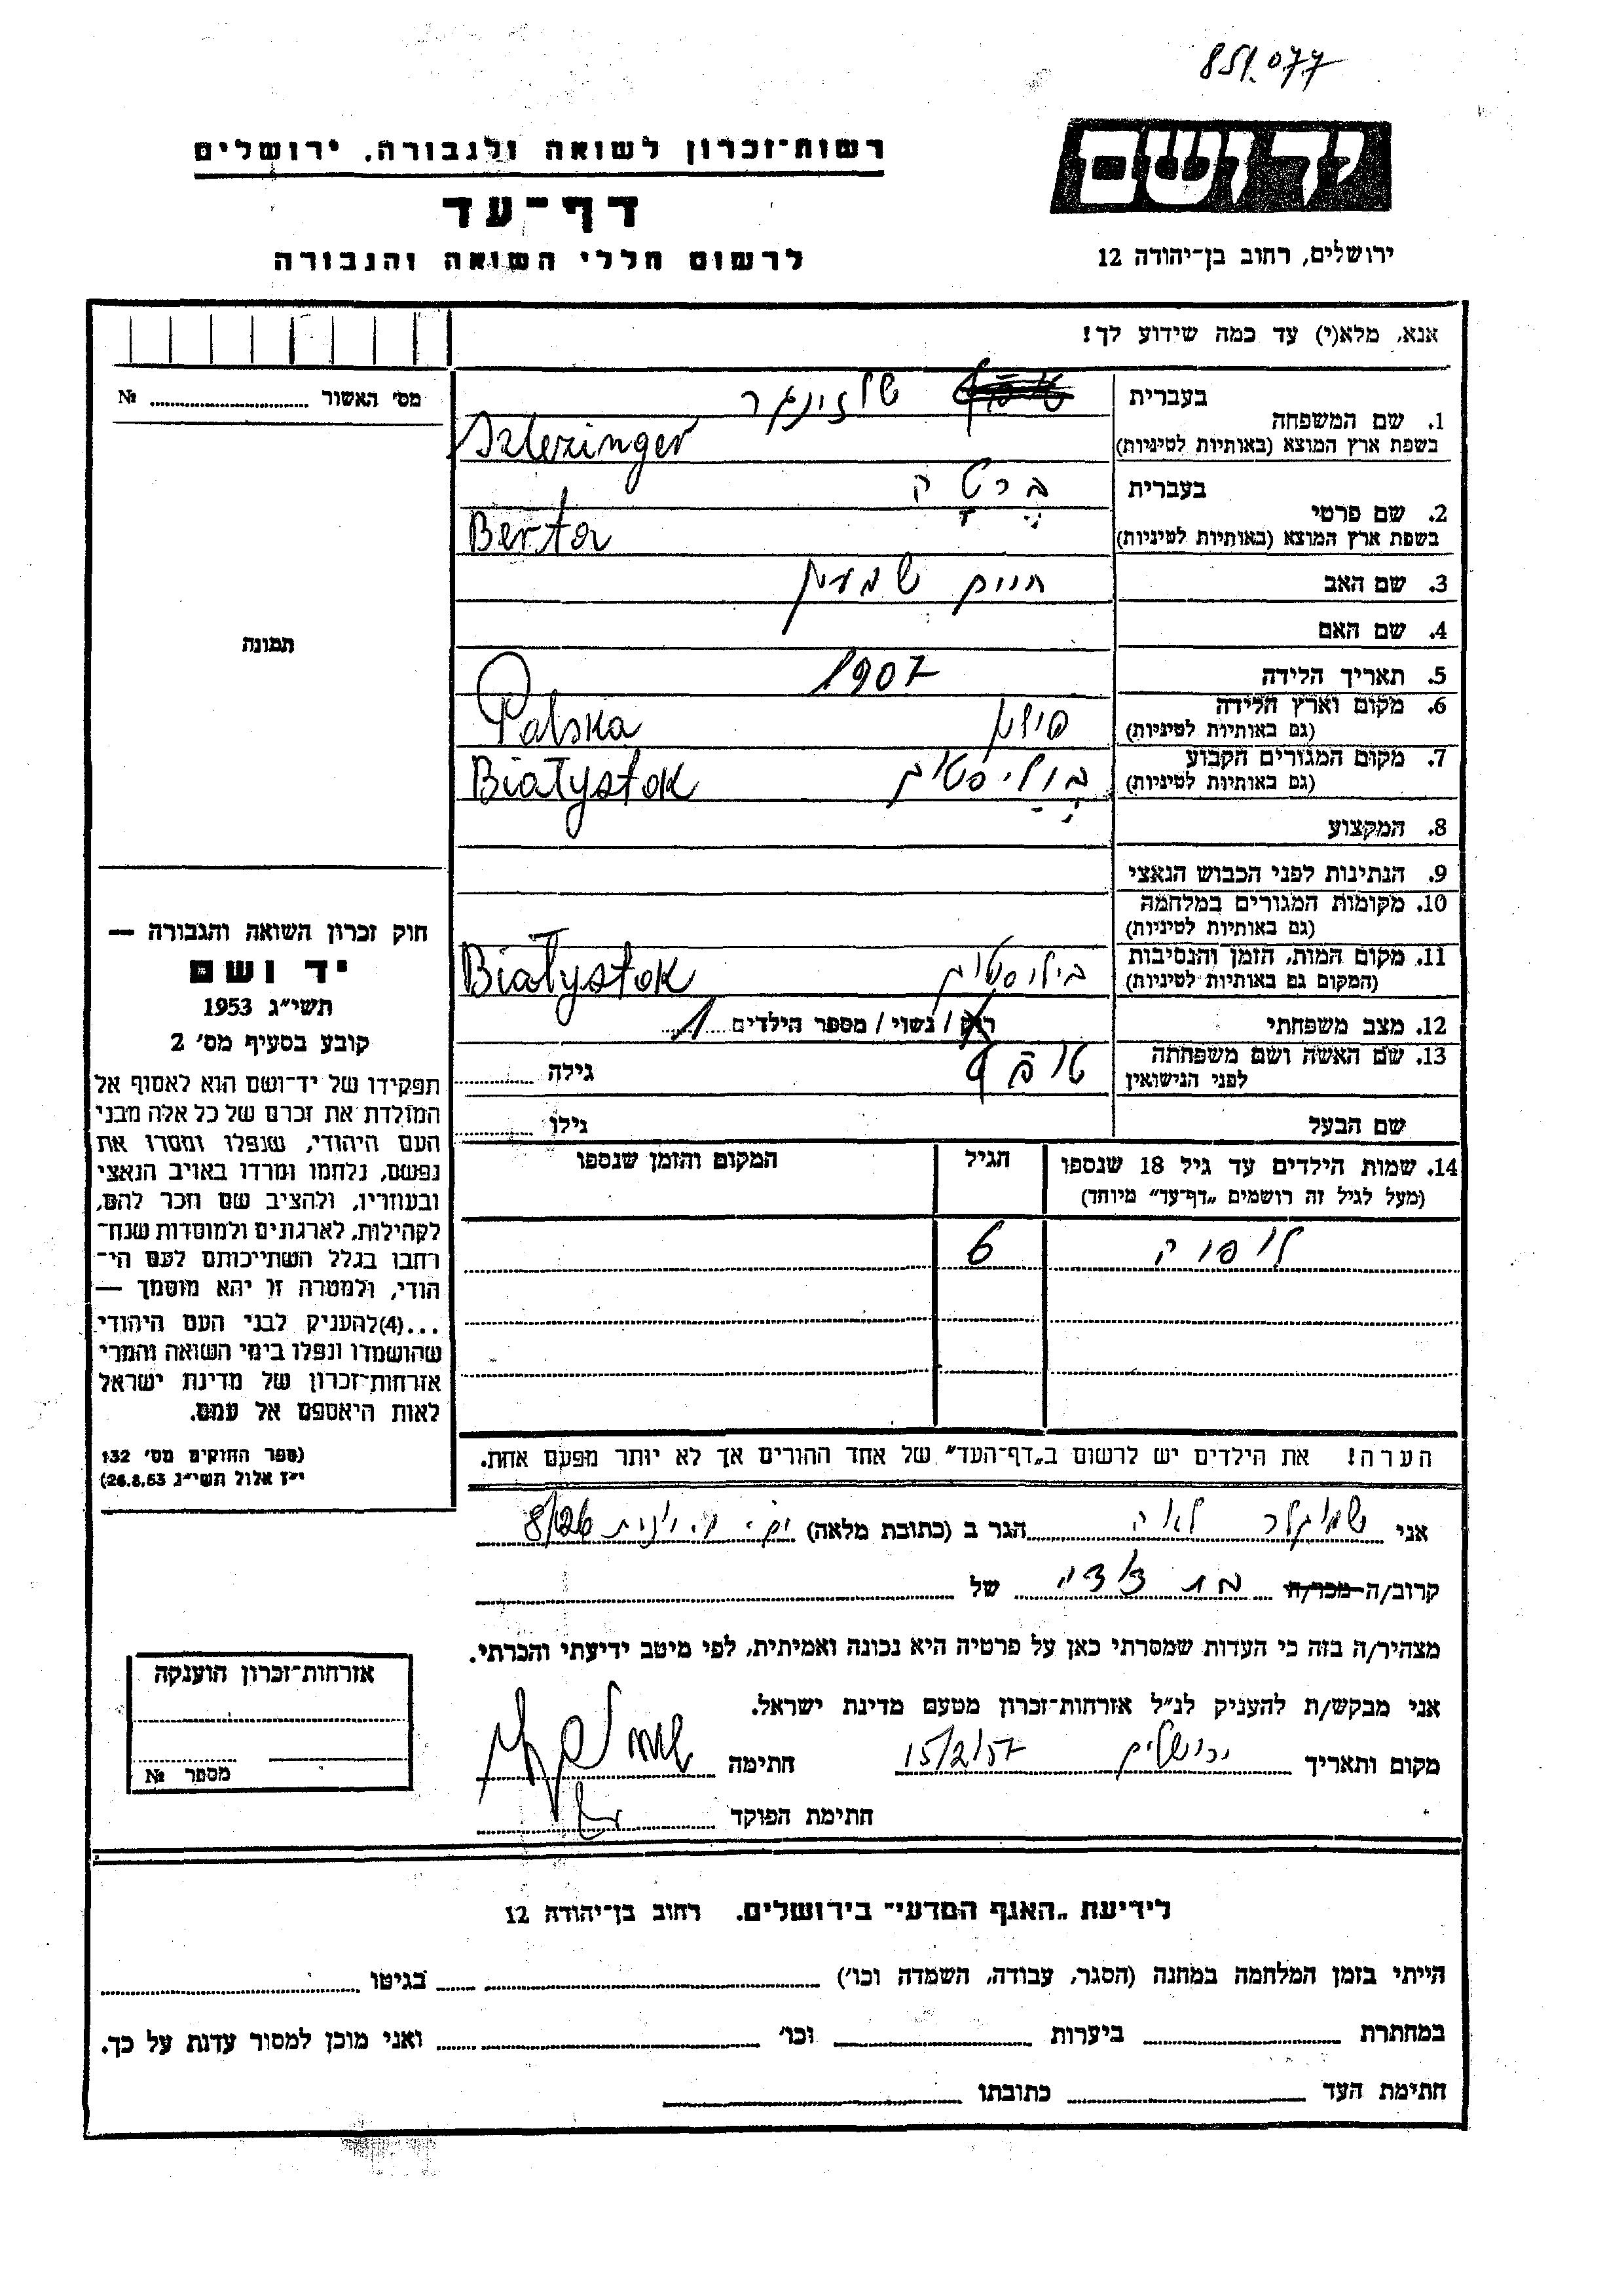 851.077
יד ושם
רשות־זכרון לשואה ולגבורה, ירושלים
דף־עד
לרשום חללי השואה והגבורה
ירושלים, רחוב בן־יהודה 12
אנא, מלא(י) עד כמה שידוע לך!
מס׳ האשור № 
1. שם המשפחה
בעברית שלזינגר
בשפת ארץ המוצא (באותיות לטיניות) Szlezinger
2. שם פרטי
בעברית ברטה
בשפת ארץ המוצא (באותיות לטיניות) Berta
3. שם האב חיים שמעון
4. שם האם
5. תאריך הלידה 1907
6. מקום וארץ הלידה פולין
(גם באותיות לטיניות) Polska
7. מקום המגורים הקבוע ביליסטוק
(גם באותיות לטיניות) Białystok
8. המקצוע
9. הנתינות לפני הכבוש הנאצי
10. מקומות המגורים במלחמה
(גם באותיות לטיניות)
11. מקום המות, הזמן והנסיבות ביליסטוק
(המקום גם באותיות לטיניות) Białystok
12. מצב משפחתי רוק / נשוי / מספר הילדים 1
13. שם האשה ושם משפחתה
לפני הנישואין גילה
שם הבעל גילו
תמונה
חוק זכרון השואה והגבורה —
יד ושם
תשי״ג 1953
קובע בסעיף מס׳ 2
תפקידו של יד־ושם הוא לאסוף אל
המולדת את זכרם של כל אלה מבני
העם היהודי, שנפלו ומסרו את
נפשם, נלחמו ומרדו באויב הנאצי
ובעוזריו, ולהציב שם וזכר להם,
לקהילות, לארגונים ולמוסדות שנח־
רבו בגלל השתייכותם לעם הי־
הודי, ולמטרה זו יהא מוסמך —
...(4)להעניק לבני העם היהודי
שהושמדו ונפלו בימי השואה והמרי
אזרחות־זכרון של מדינת ישראל
לאות היאספם אל עמם.
(ספר החוקים מס׳ 132
י״ז אלול תשי״ג 26.8.53)
14. שמות הילדים עד גיל 18 שנספו הגיל המקום והזמן שנספו
(מעל לגיל זה רושמים „דף־עד״ מיוחד)
6
הערה! את הילדים יש לרשום ב„דף־העד״ של אחד ההורים אך לא יותר מפעם אחת.
אני לאה הגר ב (כתובת מלאה) 8/126
קרוב/ה מכר/ה בת דודה של
מצהיר/ה בזה כי העדות שמסרתי כאן על פרטיה היא נכונה ואמיתית, לפי מיטב ידיעתי והכרתי.
אני מבקש/ת להעניק לנ״ל אזרחות־זכרון מטעם מדינת ישראל.
מקום ותאריך ירושלים 15/2/57 חתימה
חתימת הפוקד
אזרחות־זכרון הוענקה
מספר №
לידיעת „האגף המדעי״ בירושלים. רחוב בן־יהודה 12
הייתי בזמן המלחמה במחנה (הסגר, עבודה, השמדה וכו׳) בגיטו
במחתרת ביערות וכו׳ ואני מוכן למסור עדות על כך.
חתימת העד כתובתו